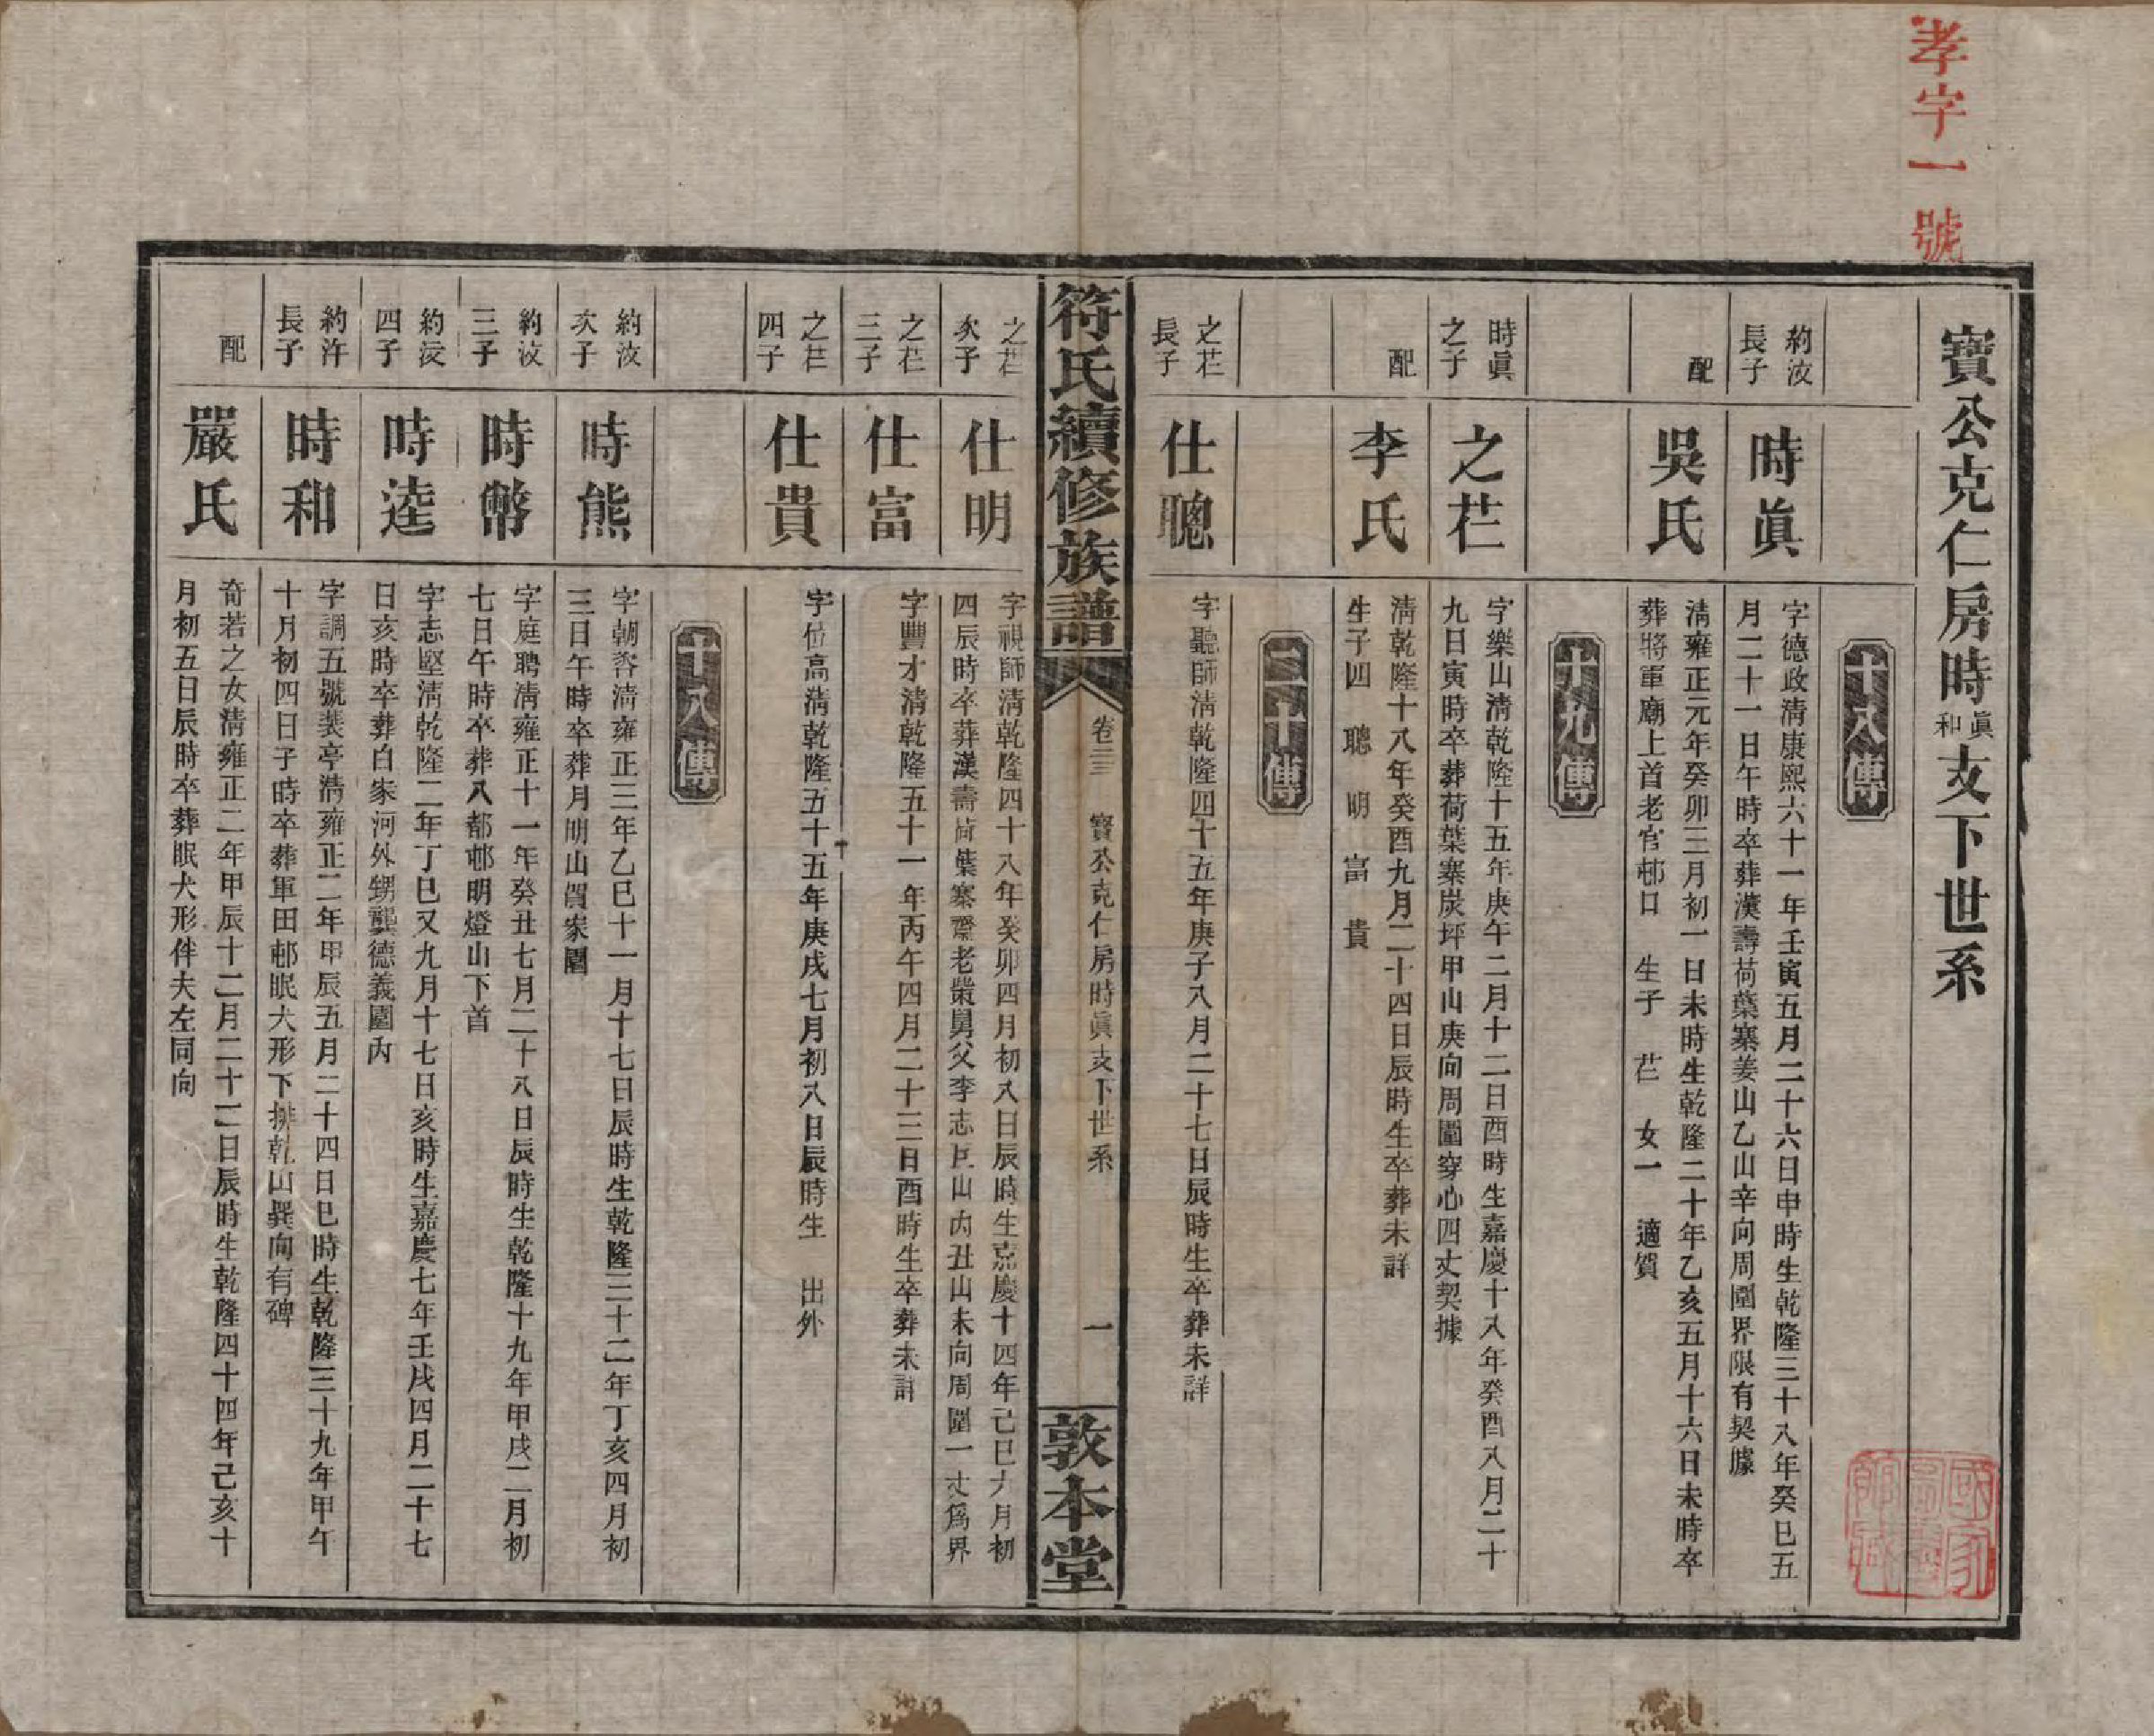 孝字一號
寶公克仁房時眞和支下世系
十八傳
約汝長子
時眞
字德政清康熙六十一年壬寅五月二十六日申時生乾隆三十八年癸巳五
月二十一日午時卒葬漢壽荷葉寨姜山乙山辛向周圍界限有契據
配
吳氏
清雍正元年癸卯三月初一日未時生乾隆二十年乙亥五月十六日未時卒
葬將軍廟上首老官邨口 生子 芢 女一 適賀
十九傳
時眞之子
之芢
字樂山清乾隆十五年庚午二月十二日酉時生嘉慶十八年癸酉八月二十
九日寅時卒葬荷葉寨炭坪甲山庚向周圍穿心四丈契據
配
李氏
清乾隆十八年癸酉九月二十四日辰時生卒葬未詳
生子四 聰 明 富 貴
二十傳
之芢長子
仕聰
字聽師清乾隆四十五年庚子八月二十七日辰時生卒葬未詳
符氏續修族譜
卷三三 寶公克仁房時眞支下世系
一
敦本堂
之芢次子
仕明
字視師清乾隆四十八年癸卯四月初八日辰時生嘉慶十四年己巳六月初
四辰時卒葬漢壽荷葉寨齋老巢舅父李志 山內丑山未向周圍一丈爲界
之芢三子
仕富
字豐才清乾隆五十一年丙午四月二十三日酉時生卒葬未詳
之芢四子
仕貴
字位高清乾隆五十五年庚戌七月初八日辰時生 出外
十八傳
約汝次子
時熊
字朝 清雍正三年乙巳十一月十七日辰時生乾隆三十二年丁亥四月初
三日午時卒葬月明山賀家園
約汝三子
時幣
字庭聘清雍正十一年癸丑七月二十八日辰時生乾隆十九年甲戌二月初
七日午時卒葬八都邨明燈山下首
約汝四子
時逵
字志堅清乾隆二年丁巳又九月十七日亥時生嘉慶七年壬戌四月二十七
日亥時卒葬白家河外甥龔德義園內
約汻長子
時和
字調五號裴亭清雍正二年甲辰五月二十四日巳時生乾隆三十九年甲午
十月初四日子時卒葬軍田邨眠犬形下排乾山巽向有碑
配
嚴氏
奇若之女清雍正二年甲辰十二月二十二日辰時生乾隆四十四年己亥十
月初五日辰時卒葬眠犬形伴夫左同向
國家圖書館藏